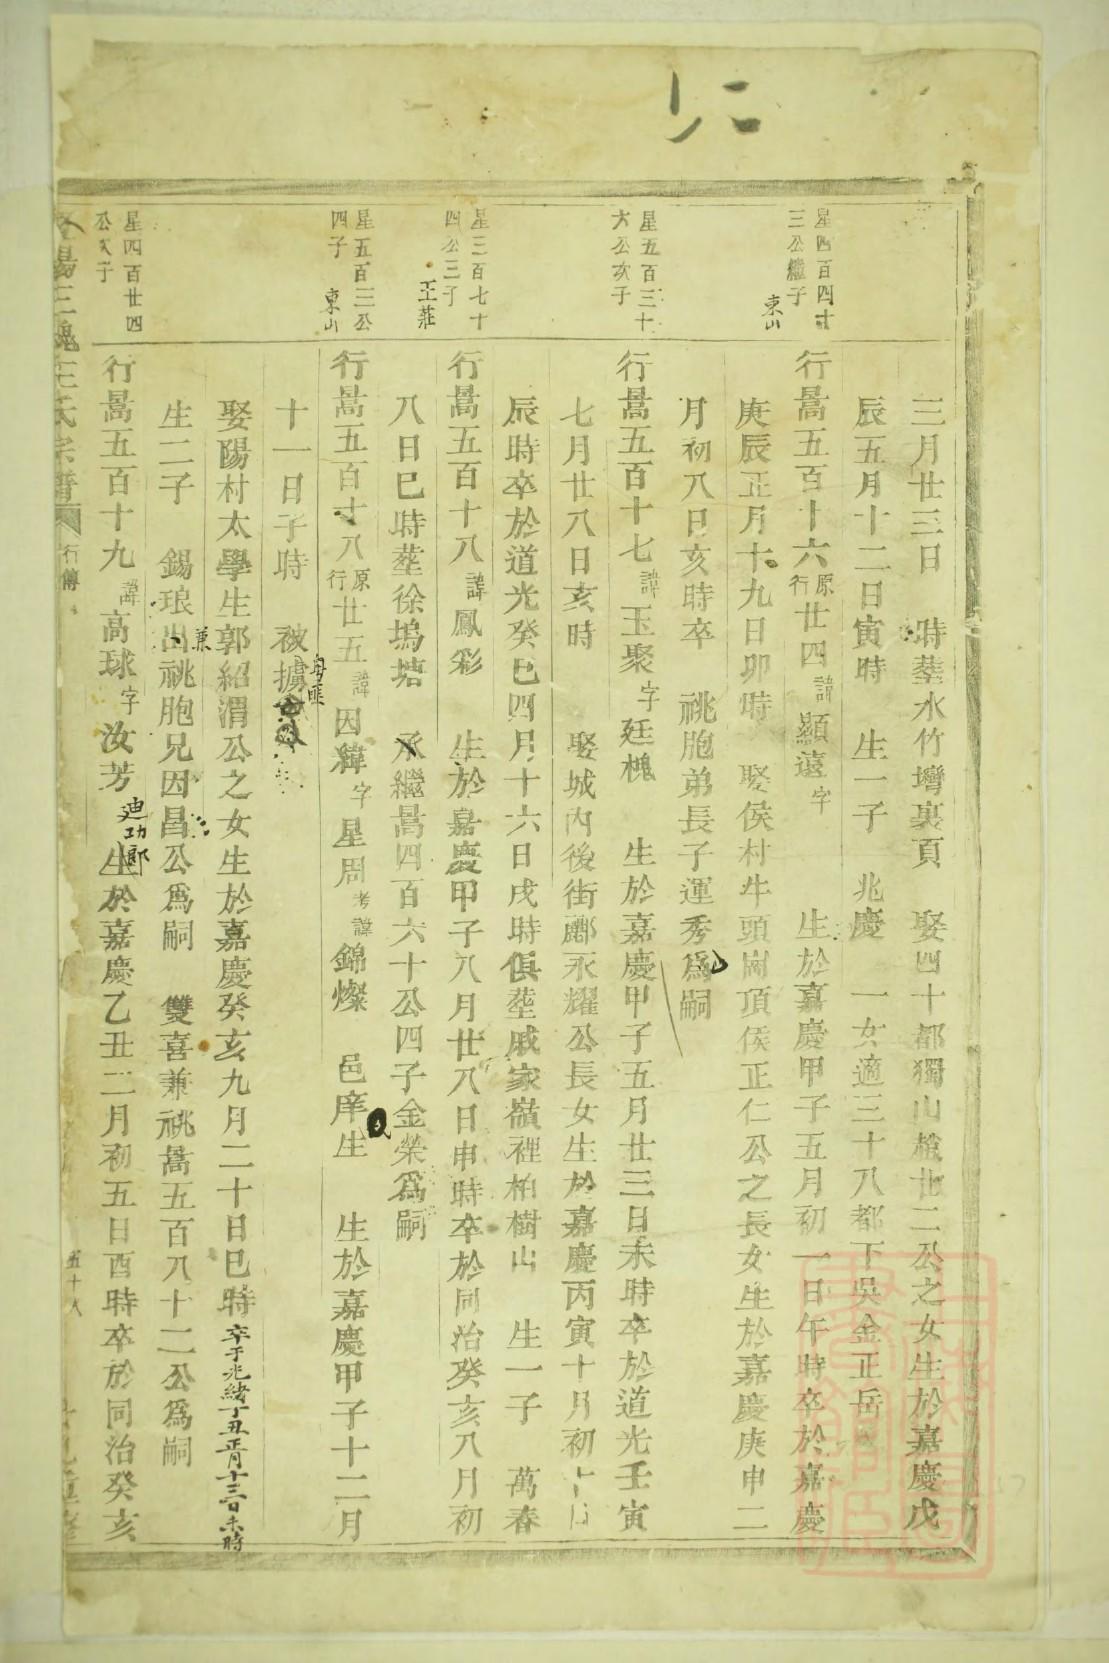 三月廿三日 時塟水竹塆裏頁 娶四十都獨山 廿二公之女生於嘉慶戊
辰五月十二日寅時 生一子 兆慶 一女適三十八都下吳金正岳
星四百四十
三公繼子
東山
行暠五百十六 原行廿四 諱顯遠 字 生於嘉慶甲子五月初一日午時卒於嘉慶
庚辰正月十九日卯時 娶侯村牛頭崗頂侯正仁公之長女生於嘉慶庚申二
月初八日亥時卒 祧胞弟長子運秀爲嗣
星五百三十
六公次子
行暠五百十七 諱玉聚 字廷槐 生於嘉慶甲子五月廿三日未時卒於道光壬寅
七月廿八日亥時 娶城內後街酈永耀公長女生於嘉慶丙寅十月初
辰時卒於道光癸巳四月十六日戌時俱塟戚家嶺裡柏樹山 生一子 萬春
星三百七十
四公三子
王莊
行暠五百十八 諱鳳彩 生於嘉慶甲子八月廿八日申時卒於同治癸亥八月初
八日巳時塟徐塢塘 承繼暠四百六十公四子金榮爲嗣
星五百三公
四子
東山
行暠五百十八 原行廿五 諱因緯 字星周 考諱錦燦 邑庠生 生於嘉慶甲子十二月
十一日子時 被擄
粵匪
娶陽村太學生郭紹渭公之女生於嘉慶癸亥九月二十日巳時 卒于光緒丁丑正月十三日未時
生二子 錫琅出祧胞兄因昌公爲嗣 雙喜兼祧暠五百八十二公爲嗣
兼
星四百廿四
公次子
行暠五百十九 諱高球 字汝芳 迪功郎 生於嘉慶乙丑二月初五日酉時卒於同治癸亥
陽三槐王氏宗譜 行傳 五十八